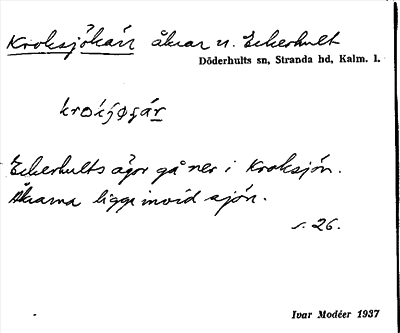 Kroksjökärr åkrar n. Eckerhult
Döderhults sn, Stranda hd, Kalm. l.
Eckerhults ägor gå ner i Kroksjön.
Åkrarna ligga invid sjön.
s. 26.
Ivar Modéer 1937